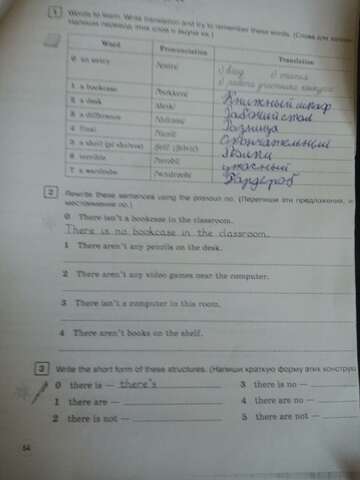 1 Words to learn. Write translation and try to remember these words. (Слова для
перевод этих слов и выучи их.)
Word Pronunciation Translation
0 an entry 1) вход 2) статья
3) работа участника конкурса
1 a bookcase Книжный шкаф
2 a desk Рабочий стол
3 a difference Разница
4 final Окончательный
5 a shelf (pl shelves) Полки
6 terrible ужасный
7 a wardrobe Гардероб
2 Rewrite these sentences using the pronoun no. (Перепиши эти предложения, и
местоимение no.)
0 There isn't a bookcase in the classroom.
There is no bookcase in the classroom.
1 There aren't any pencils on the desk.
2 There aren't any video games near the computer.
3 There isn't a computer in this room.
4 There aren't books on the shelf.
3 Write the short form of these structures. (Напиши краткую форму этих конструк
0 there is — there's 3 there is no —
1 there are — 4 there are no —
2 there is not — 5 there are not —
64